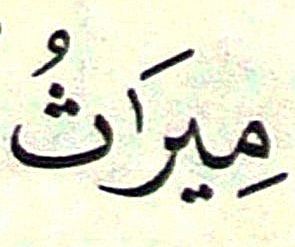 مِيرَاثُ